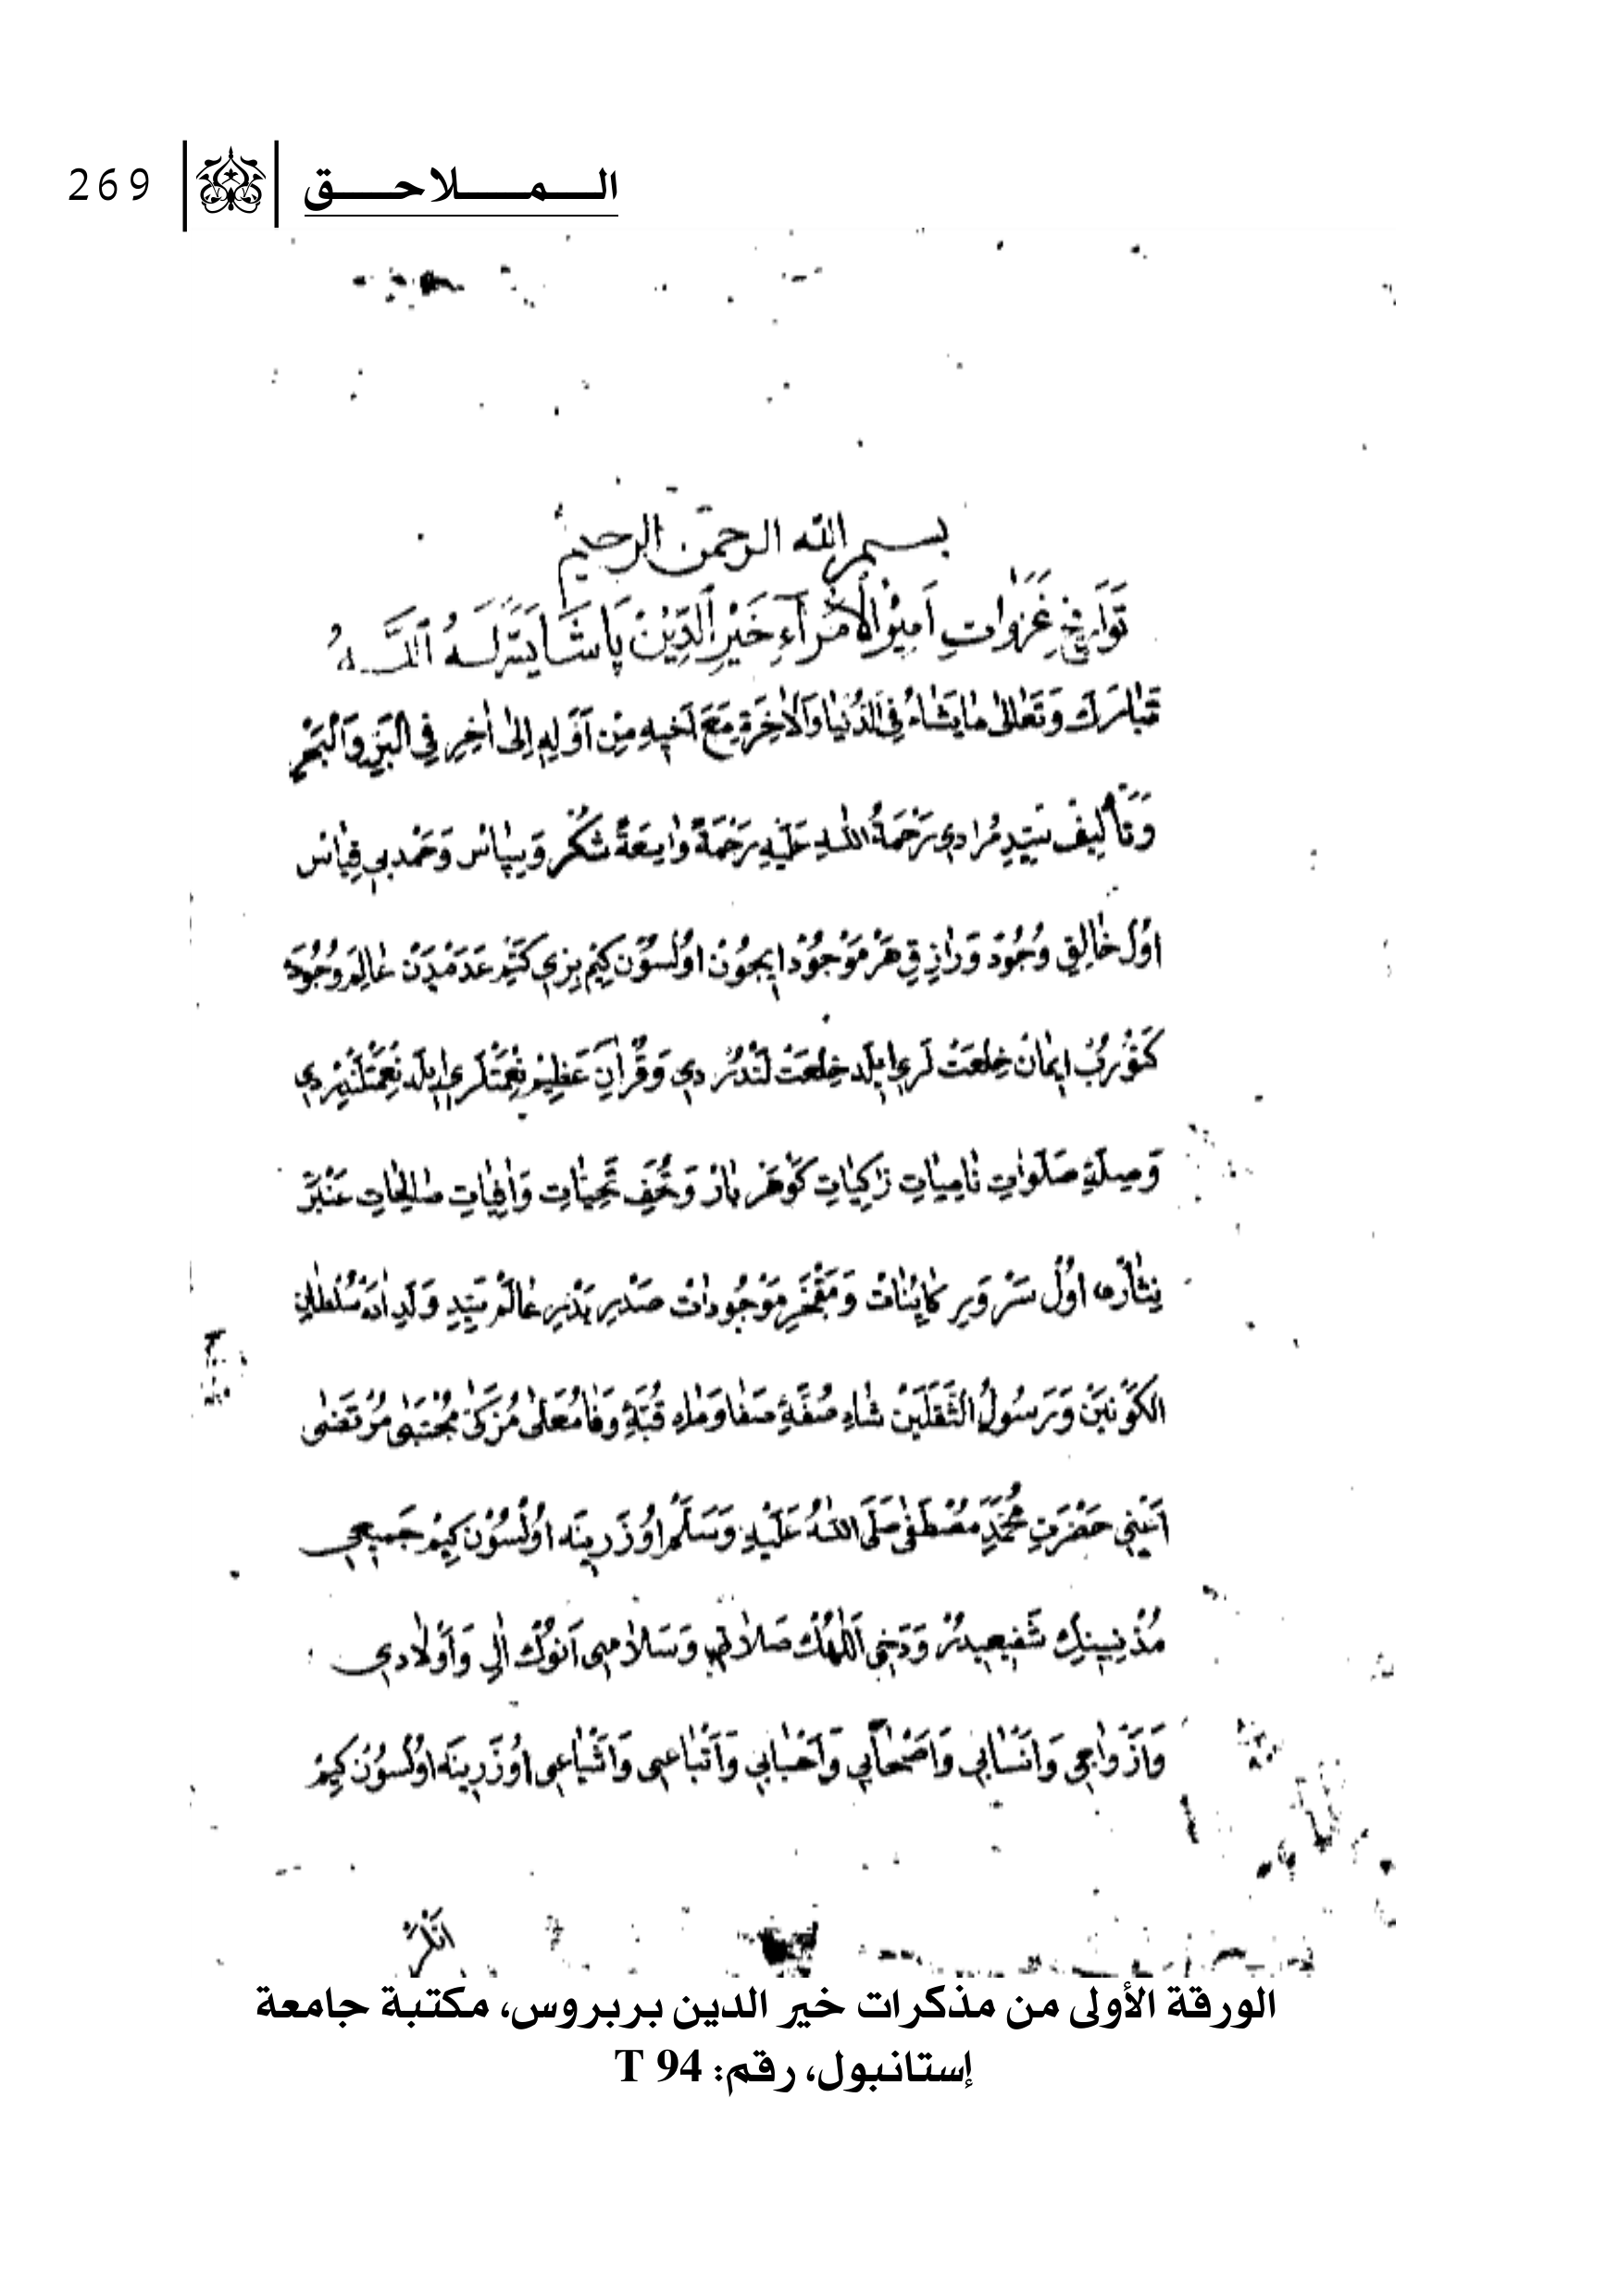 الملاحق 269
بسم الله الرحمن الرحيم
تَوَارِيخِ غَزَوَاتِ اَمِيرُ الْاُمَرَآءِ خَيْرِ الدِّيْنْ پَاشَا يَسَّرَ لَهُ اللَّـهُ
تَبَارَكَ وَتَعَالٰى مَا يَشَاءُ فِي الدُّنْيَا وَالْاٰخِرَةِ مَعَ اَخِيهِ مِنْ اَوَّلِهِ اِلٰى اٰخِرِ فِي الْبَرِّ وَالْبَحْرِ
وَتَأْلِيفْ سَيِّدِ مُرَادِي رَحْمَةُ اللهِ عَلَيْهِ رَحْمَةً وَاسِعَةً شُكْرُ وَسِپَاسْ وَحَمْدِ بِي قِيَاسْ
اُولْ خَالِقِ وُجُودْ وَرَازِقِ هَرْ مَوْجُودْ اِيچُونْ اُولْسُونْ كِيمْ بِزِي كَتْمِ عَدَمْدَنْ عَالَمِ وُجُودَه
كَتُورُبْ اِيمَانْ خِلْعَتْ لَرِي اِيلَه خِلْعَتْ لَنْدُرْدِي وَقُرْاٰنِ عَظِيمْ نِعْمَتْلَرِي اِيلَه نِعْمَتْلَنْدِرْدِي
وَصِلَةِ صَلَوَاتِ نَامِيَاتِ زَاكِيَاتِ كَوْهَرْ بَارْ وَتُحَفِ تَحِيَّاتِ وَافِيَاتِ صَالِحَاتِ عَنْبَرْ
نِثَارْ اُولْ سَرْوَرِ كَايِنَاتْ وَمَفْخَرِ مَوْجُودَاتْ صَدْرِ بَدْرِ عَالَمْ سَيِّدِ وَلَدِ اٰدَمْ سُلْطَانِ
الْكَوْنَيْنْ وَرَسُولُ الثَّقَلَيْنْ شَاهِ صُفَّۀِ صَفَا وَمَاهِ قُبَّۀِ وَفَا مُعَلّٰى مُزَكّٰى مُجْتَبٰى مُرْتَضٰى
اَعْنِي حَضْرَتِ مُحَمَّدِ مُصْطَفٰى صَلَّى اللهُ عَلَيْهِ وَسَلَّمْ اُوزَرِينَه اُولْسُونْ كِيمْ جَمِيعِ
مُذْنِبِينِكْ شَفِيعِيدُرْ وَدَخِي اَللّٰهُكْ صَلَاتِي وَسَلَامِى اَنُوكْ اٰلِي وَاَوْلَادِي
وَاَزْوَاجِى وَاَنْسَابِي وَاَصْحَابِي وَاَحْبَابِي وَاَتْبَاعِى وَاَشْيَاعِى اُوزَرِينَه اُولْسُونْ كِيمْ
انلر
الورقة الأولى من مذكرات خير الدين بربروس، مكتبة جامعة
إستانبول، رقم: T 94